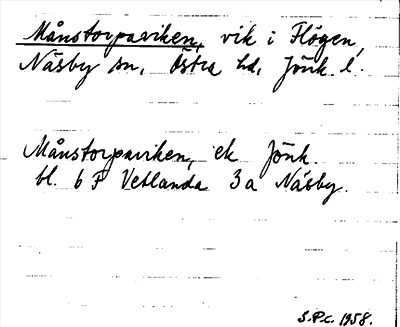 Månstorpaviken, vik i Flögen,
Näsby sn, Östra hd, Jönk. l.
Månstorpaviken, ek Jönk.
bl. 6 F Vetlanda 3a Näsby.
S.P.c. 1958.